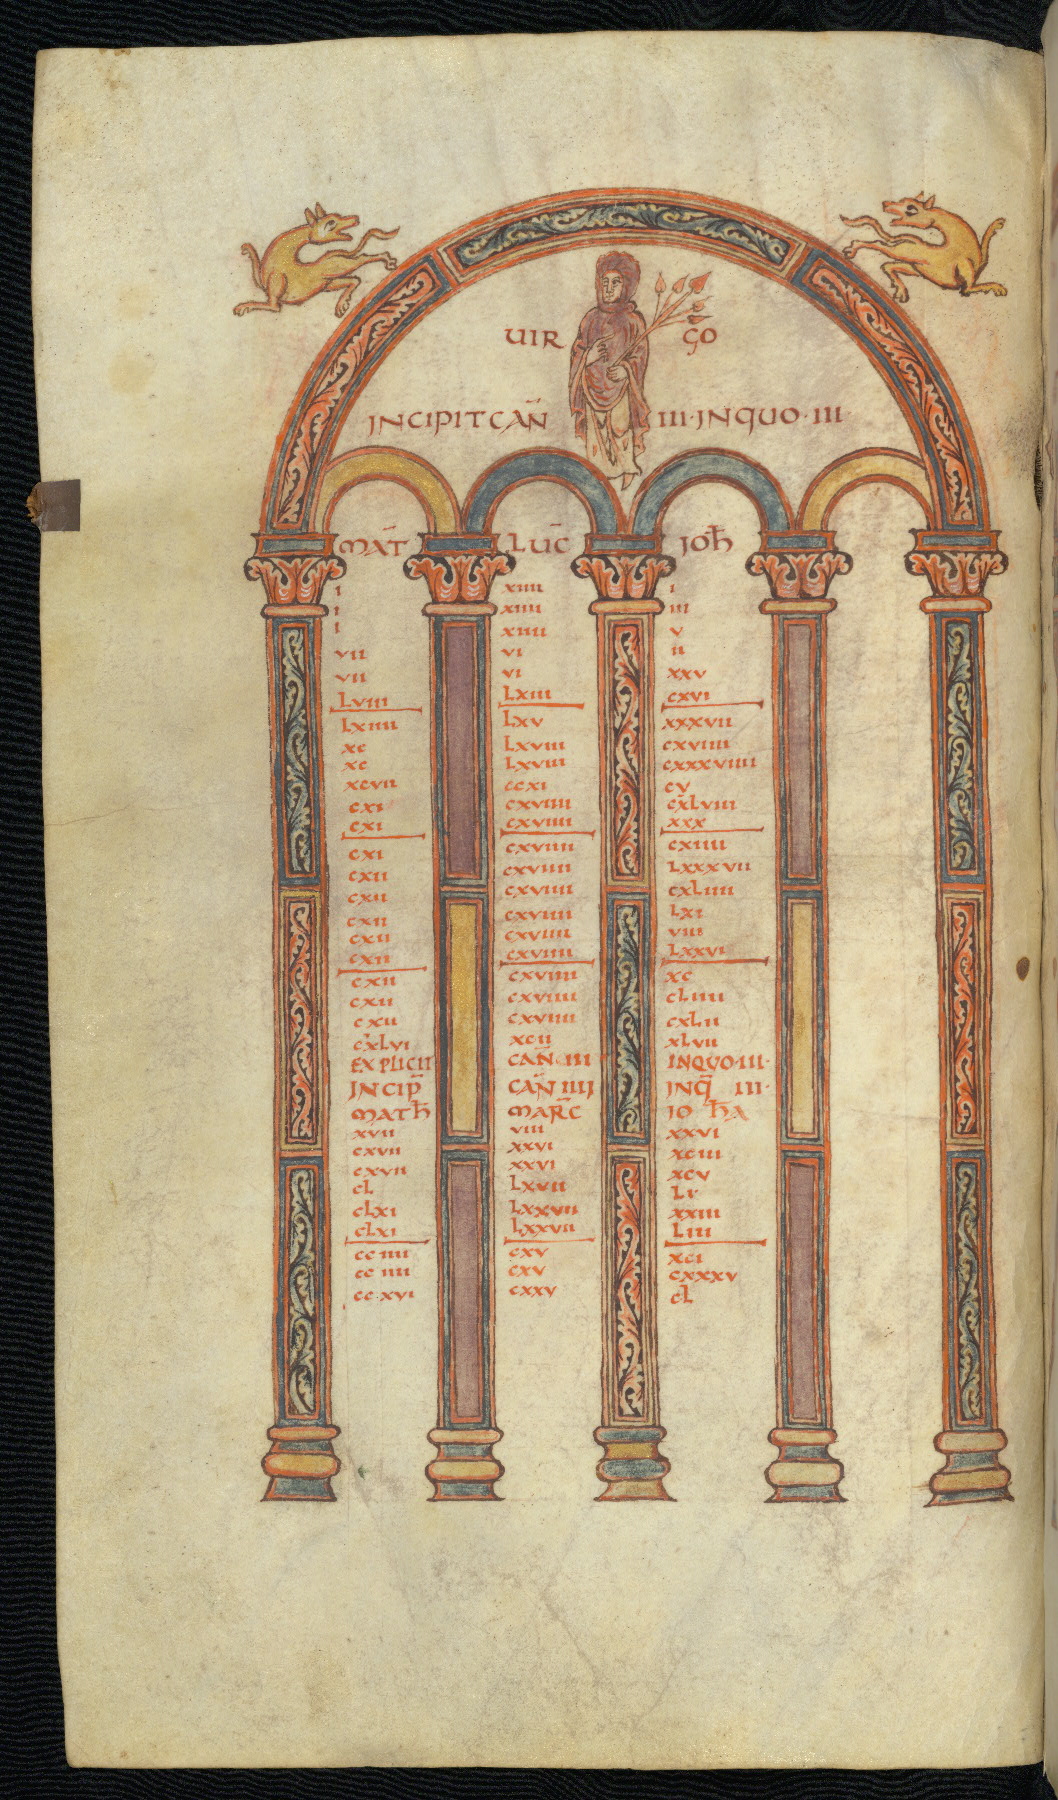 UIR GO
INCIPIT CAÑ III · IN QUO · III
MAT LUC IOH
I XIIII I
I XIIII III
I XIIII V
VII VI II
VII VI XXV
LVIII LXIII CXVI
LXIIII LXV XXXVII
XC LXVIII CXVIIII
XC LXVIII CXXXVIIII
XCVII CCXI CV
CXI CXVIIII CXLVIII
CXI CXVIIII XXX
CXI CXVIIII CXIIII
CXII CXVIIII LXXXVII
CXII CXVIIII CXLIIII
CXII CXVIIII LXI
CXII CXVIIII
CXII CXVIIII LXXVI
CXII CXVIIII XC
CXII CXVIIII CLIIII
CXII CXVIIII CXLII
CXLVI XCII XLVII
EXPLICIT CAÑ · III IN QUO · III ·
INCIP CAÑ IIII INQ III ·
MATH MARC IOHA
XVII VIII XXVI
CXVII XXVI XCIII
CXVII XXVI XCV
CL LXVII LI
CLXI LXXVII XXIII
CLXI LXXVII LIII
CCIIII CXV XCI
CCIIII CXV CXXXV
CCXVI CXXV CL